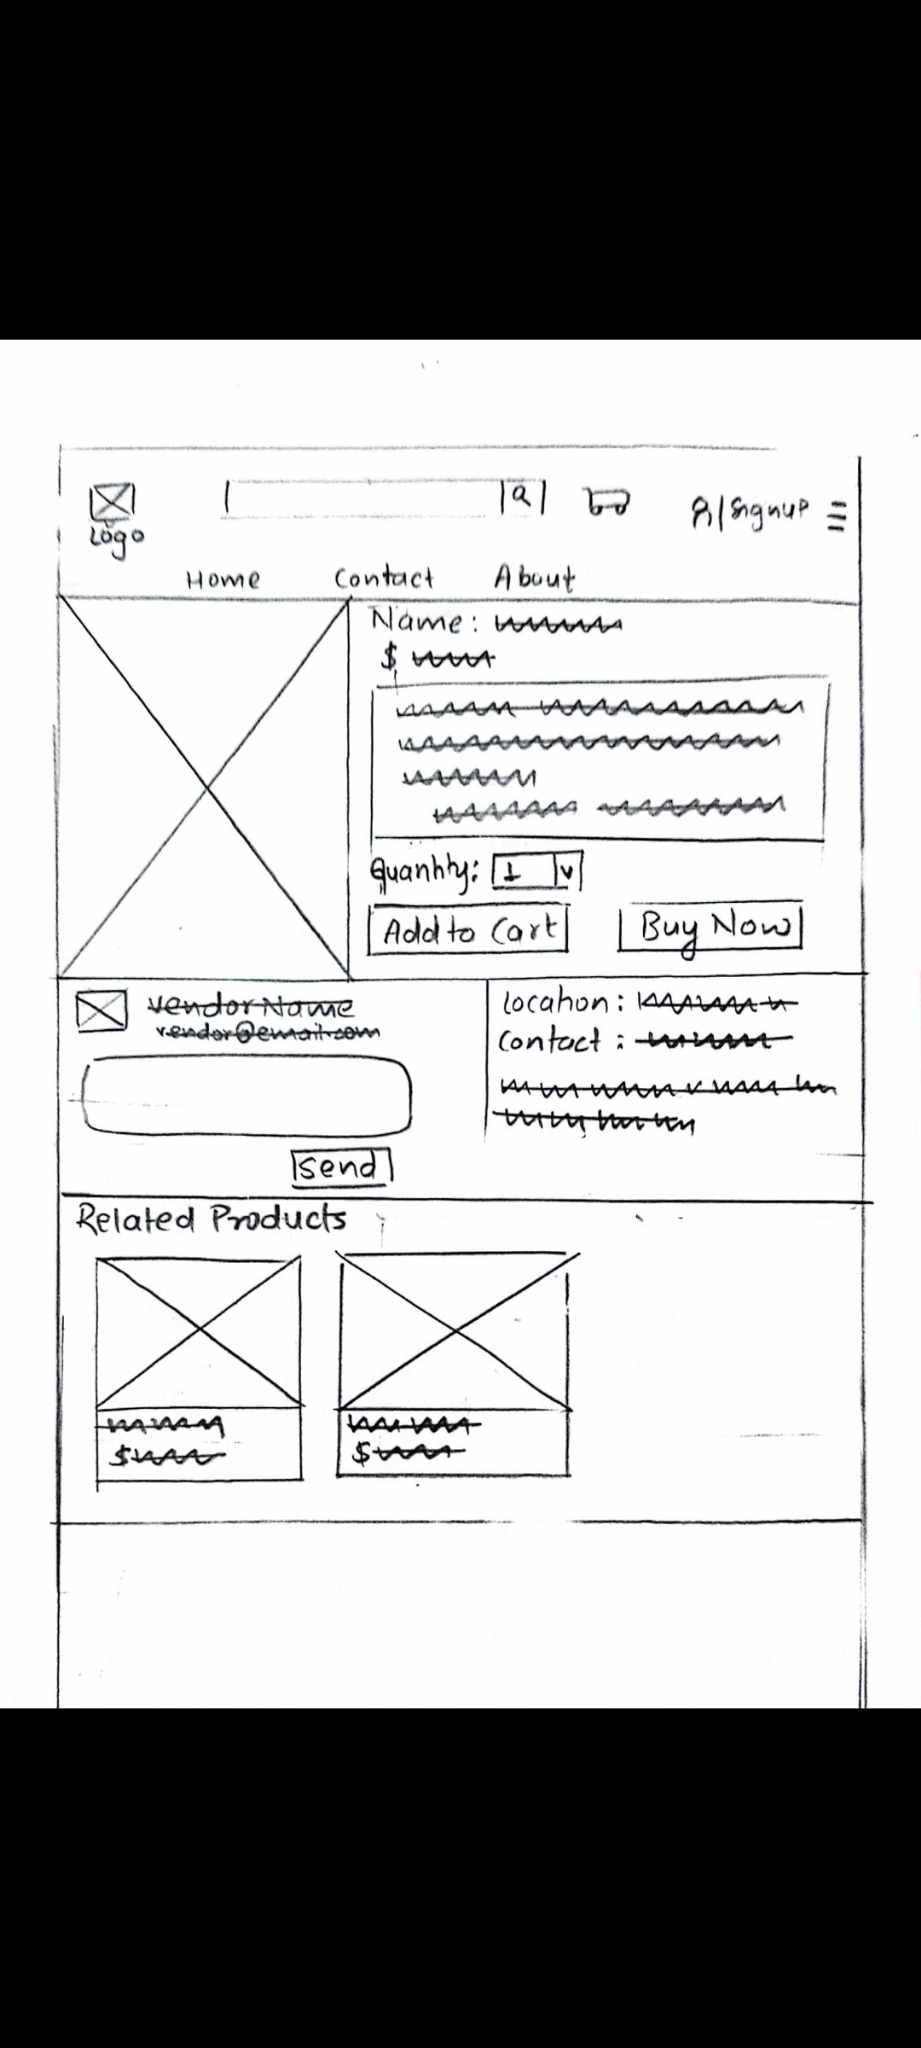 Logo
Signup
Home Contact About
Name:
$
Quantity: 1
Add to Cart Buy Now
vendor Name
vendor@email.com
Location:
Contact:
Send
Related Products
$ $